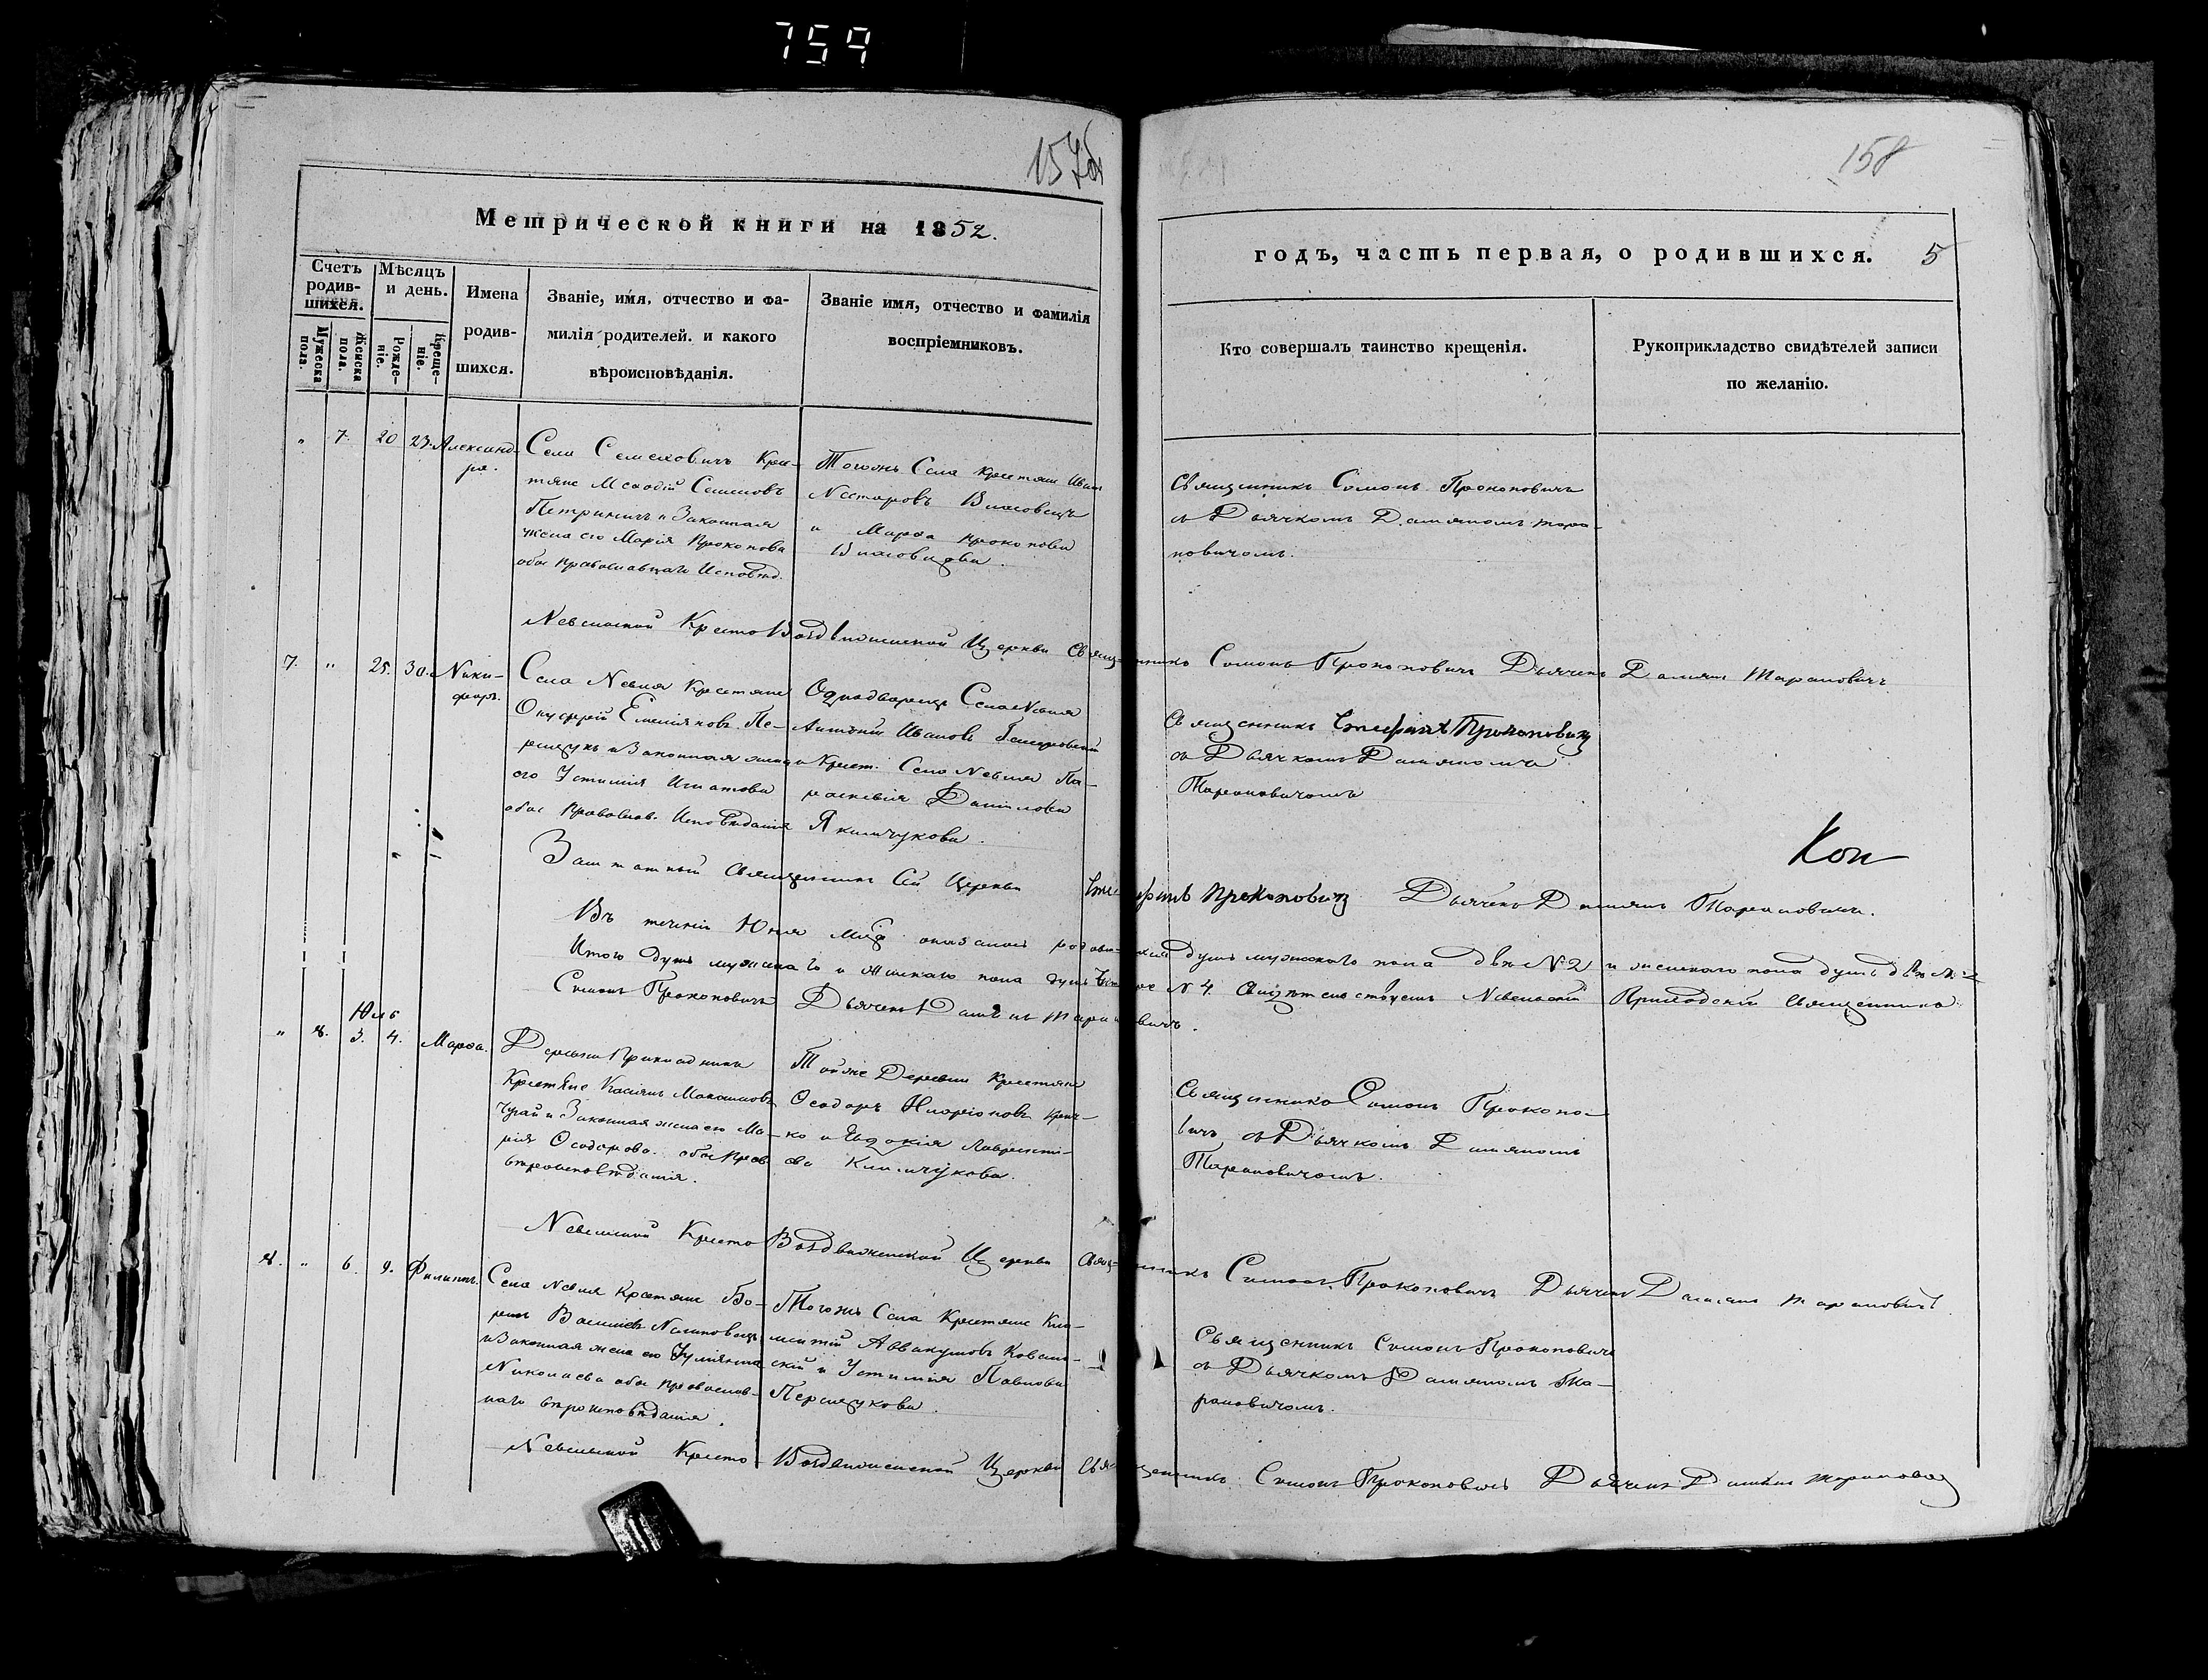 759
157об
158
Метрической книги на 1852.
годъ, часть первая, о родившихся. 5
Счетъ родив-
шихся.
Мѣсяцъ
и день.
Мужеска пола.
Женска пола.
Рожде-
ніе.
Креще-
ніе.
Имена
родив-
шихся.
Званіе, имя, отчество и фа-
милія родителей. и какого
вѣроисповѣданія.
Званіе имя, отчество и фамилія
воспріемниковъ.
Кто совершалъ таинство крещенія.
Рукоприкладство свидѣтелей записи
по желанію.
" 7. 20 23. Александ-
ра.
Села Семеховичъ Крес-
тяне Меѳодій Семеновъ
и Законная
жена его Марія Прокопова
обое православнаго Исповѣд.
Тогожъ Села Крестяне Иванъ
Нестеровъ Власовецъ
и Марѳа Прокопова
Власовцова.
Священникъ Симонъ Прокоповичъ
съ Дьячкомъ Даміяномъ Тара-
новичомъ.
Невельской КрестоВоздвиженской Церкви Священникъ Симонъ Прокоповичъ Дьячекъ Даміянъ Тарановичъ
7. " 25. 30. Ники-
форъ.
Села Невля Крестяне
Онуфрій Емеліяновъ Пе-
рещукъ и Законная жена
его Устинія Игнатова
обое Православ. Исповѣданія
Однодворецъ Села Невля
Антоній Ивановъ
и Крест. Села Невля Па-
раскевія Данилова
Якимчукова.
Священникъ Стефанъ Прокоповичъ
съ Дьячкомъ Даміяномъ
Тарановичомъ
Кон
Заштатный Священникъ Сей Церкви Стефанъ Прокоповичъ Дьячекъ Даміянъ Тарановичъ.
Въ теченіи Юня мца оказалось родившихся душъ мужескаго пола двѣ №2 и женскаго пола душъ двѣ №2
Итого душъ мужеска го и женскаго пола душъ четыре № 4. Свидѣтельствуемъ Невельскій Приходскій Священникъ
Симонъ Прокоповичъ Дьячекъ Даміянъ Тарановичъ.
Юль
" 8. 3. 4. Марѳа.
Деревни Прикладникъ
Крестяне Касіянъ Максимовъ
и Законная жена его Ма-
рія Ѳеодорова обое Прав.
вѣроисповѣданія.
Тойже Деревни Крестяне
Ѳеодоръ Иларіоновъ
ко и Евдокія Лавренті-
ева Климчукова.
Священникъ Симонъ Прокопо-
вичъ съ Дьячкомъ Даміяномъ
Тарановичомъ.
Невельской КрестоВоздвиженской Церкви Священникъ Симонъ Прокоповичъ Дьячекъ Даміянъ Тарановичъ.
8. " 6. 9. Филиппъ.
Села Невля Крестяне Бо-
рисъ Василіевъ
и Законная жена его Уліянна
Николаева обое православ-
наго вѣроисповѣданія.
Тогожъ Села Крестяне Кли-
ментій Аввакумовъ Коваль-
скій и Устинія Павлова
Перещукова.
Священникъ Симонъ Прокоповичъ
съ Дьячкомъ Даміяномъ Та-
рановичомъ.
Невельской КрестоВоздвиженской Церкви Священникъ Симонъ Прокоповичъ Дьячекъ Даміянъ Тарановичъ